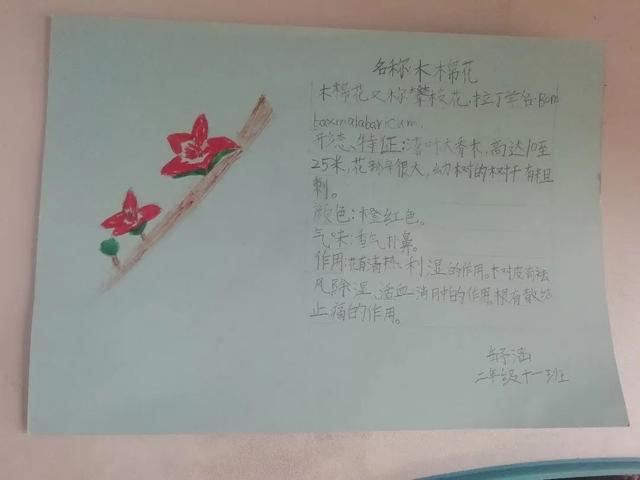 名称:木棉花
木棉花又称攀枝花,拉丁学名:Bom
baxmalabaricum.
形态、特征:落叶大乔木,高达10至
25米,花形很大,幼树的树干有粗
刺。
颜色:橙红色。
气味:香气扑鼻。
作用:花有清热、利湿的作用。木对皮有祛
风除湿、活血消肿的作用。根有散结
止痛的作用。
舒涵
二年级十一班